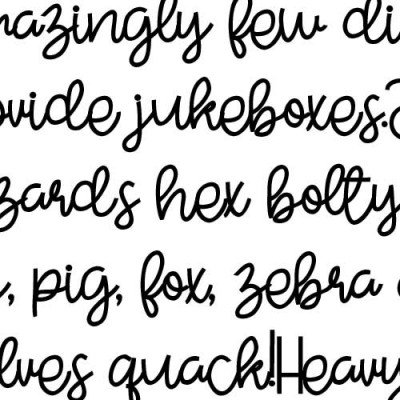 mazingly few di
ovide jukeboxes?
zards hex bolty
, pig, fox, zebra
lves quack!Heavy